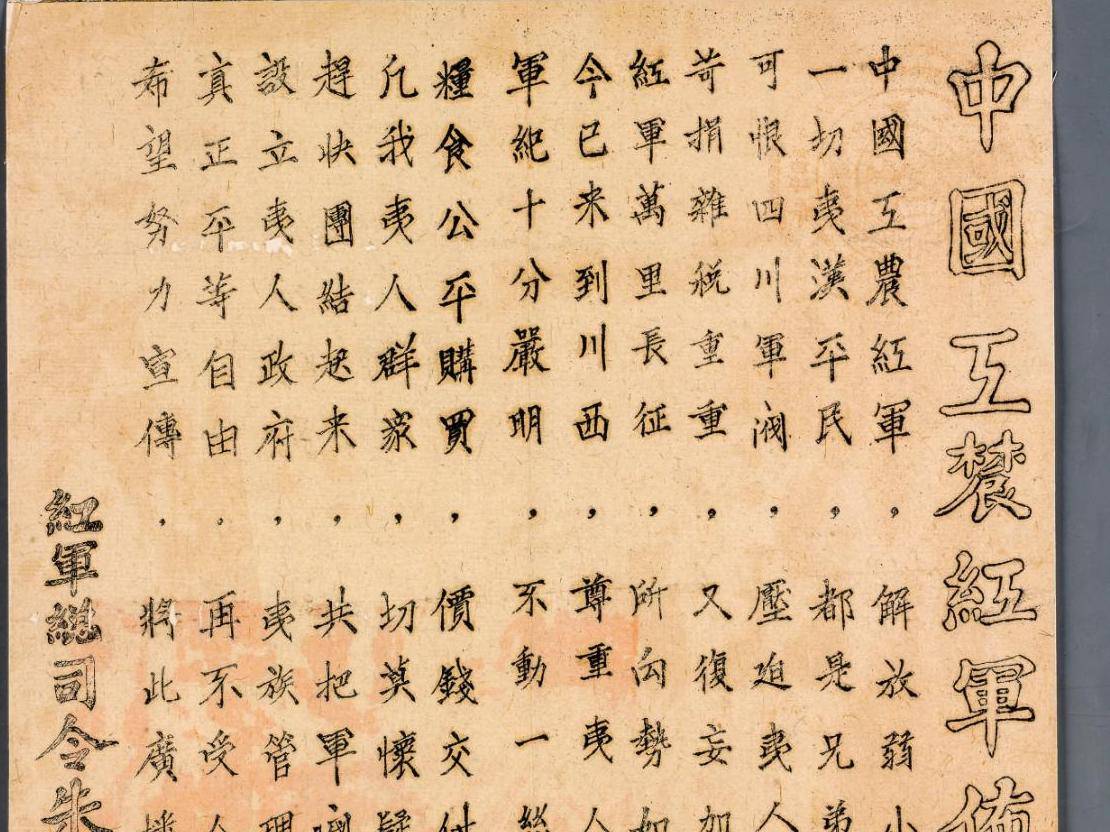 中國工農紅軍佈
中國工農紅軍，解放弱小
一切夷漢平民，都是兄弟
可恨四川軍閥，壓迫夷人
苛捐雜稅重重，又復妄加
紅軍萬里長征，所向勢如
今已来到川西，尊重夷人
軍紀十分嚴明，不動一絲
糧食公平購買，價錢交付
凡我夷人群衆，切莫懷疑
趕快團結起来，共把軍閥
設立夷人政府，夷族管理
真正平等自由，再不受人
希望努力宣傳，將此廣播
紅軍總司令朱